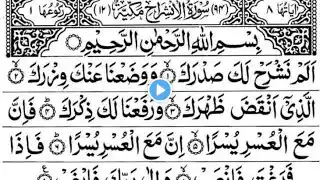 اٰیَاتُهَا ٨ (٩٤) سُوْرَةُ الْاِنْشِرَاحِ مَكِّيَّةٌ (١٢) رُكُوْعُهَا ١
بِسْمِ اللهِ الرَّحْمٰنِ الرَّحِيْمِ
اَلَمْ نَشْرَحْ لَكَ صَدْرَكَ ۝١ وَوَضَعْنَا عَنْكَ وِزْرَكَ ۝٢
الَّذِيْٓ اَنْقَضَ ظَهْرَكَ ۝٣ وَرَفَعْنَا لَكَ ذِكْرَكَ ۝٤ فَاِنَّ
مَعَ الْعُسْرِ يُسْرًا ۝٥ اِنَّ مَعَ الْعُسْرِ يُسْرًا ۝٦ فَاِذَا